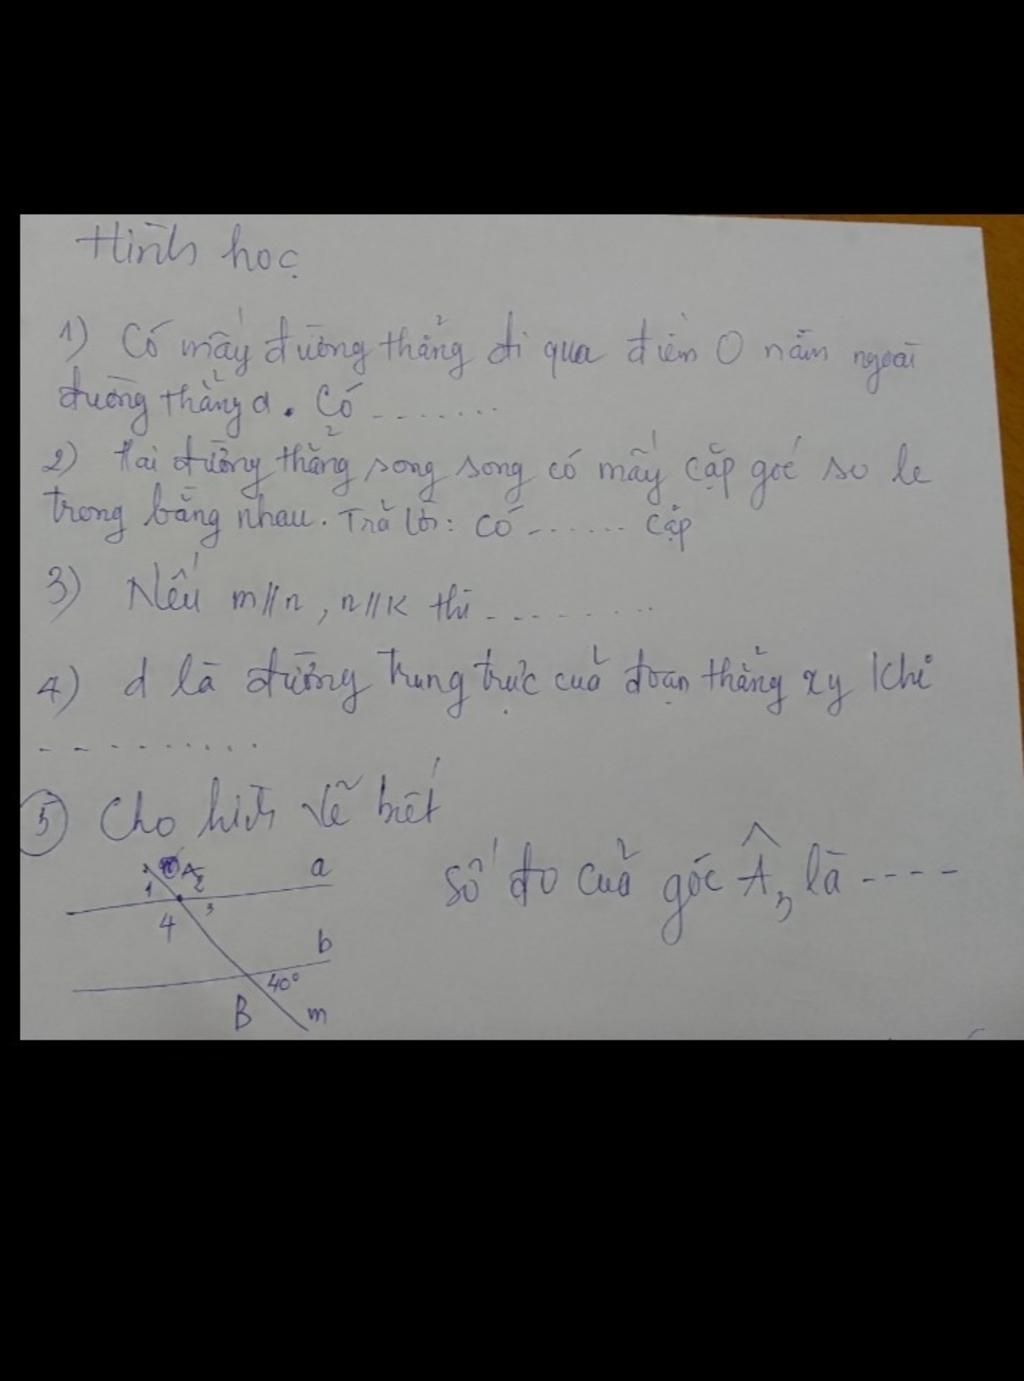 Hình học
1) Có mấy đường thẳng đi qua điểm O nằm ngoài
đường thẳng d. Có ........
2) Hai đường thẳng song song có mấy cặp góc so le
trong bằng nhau. Trả lời: có ....... cặp
3) Nếu m//n, n//K thì .........
4) d là đường trung trực của đoạn thẳng xy khi
..........
5) Cho hình vẽ biết
số đo của góc Â3 là ----
A
1 2 a
4 3
b
40°
B m